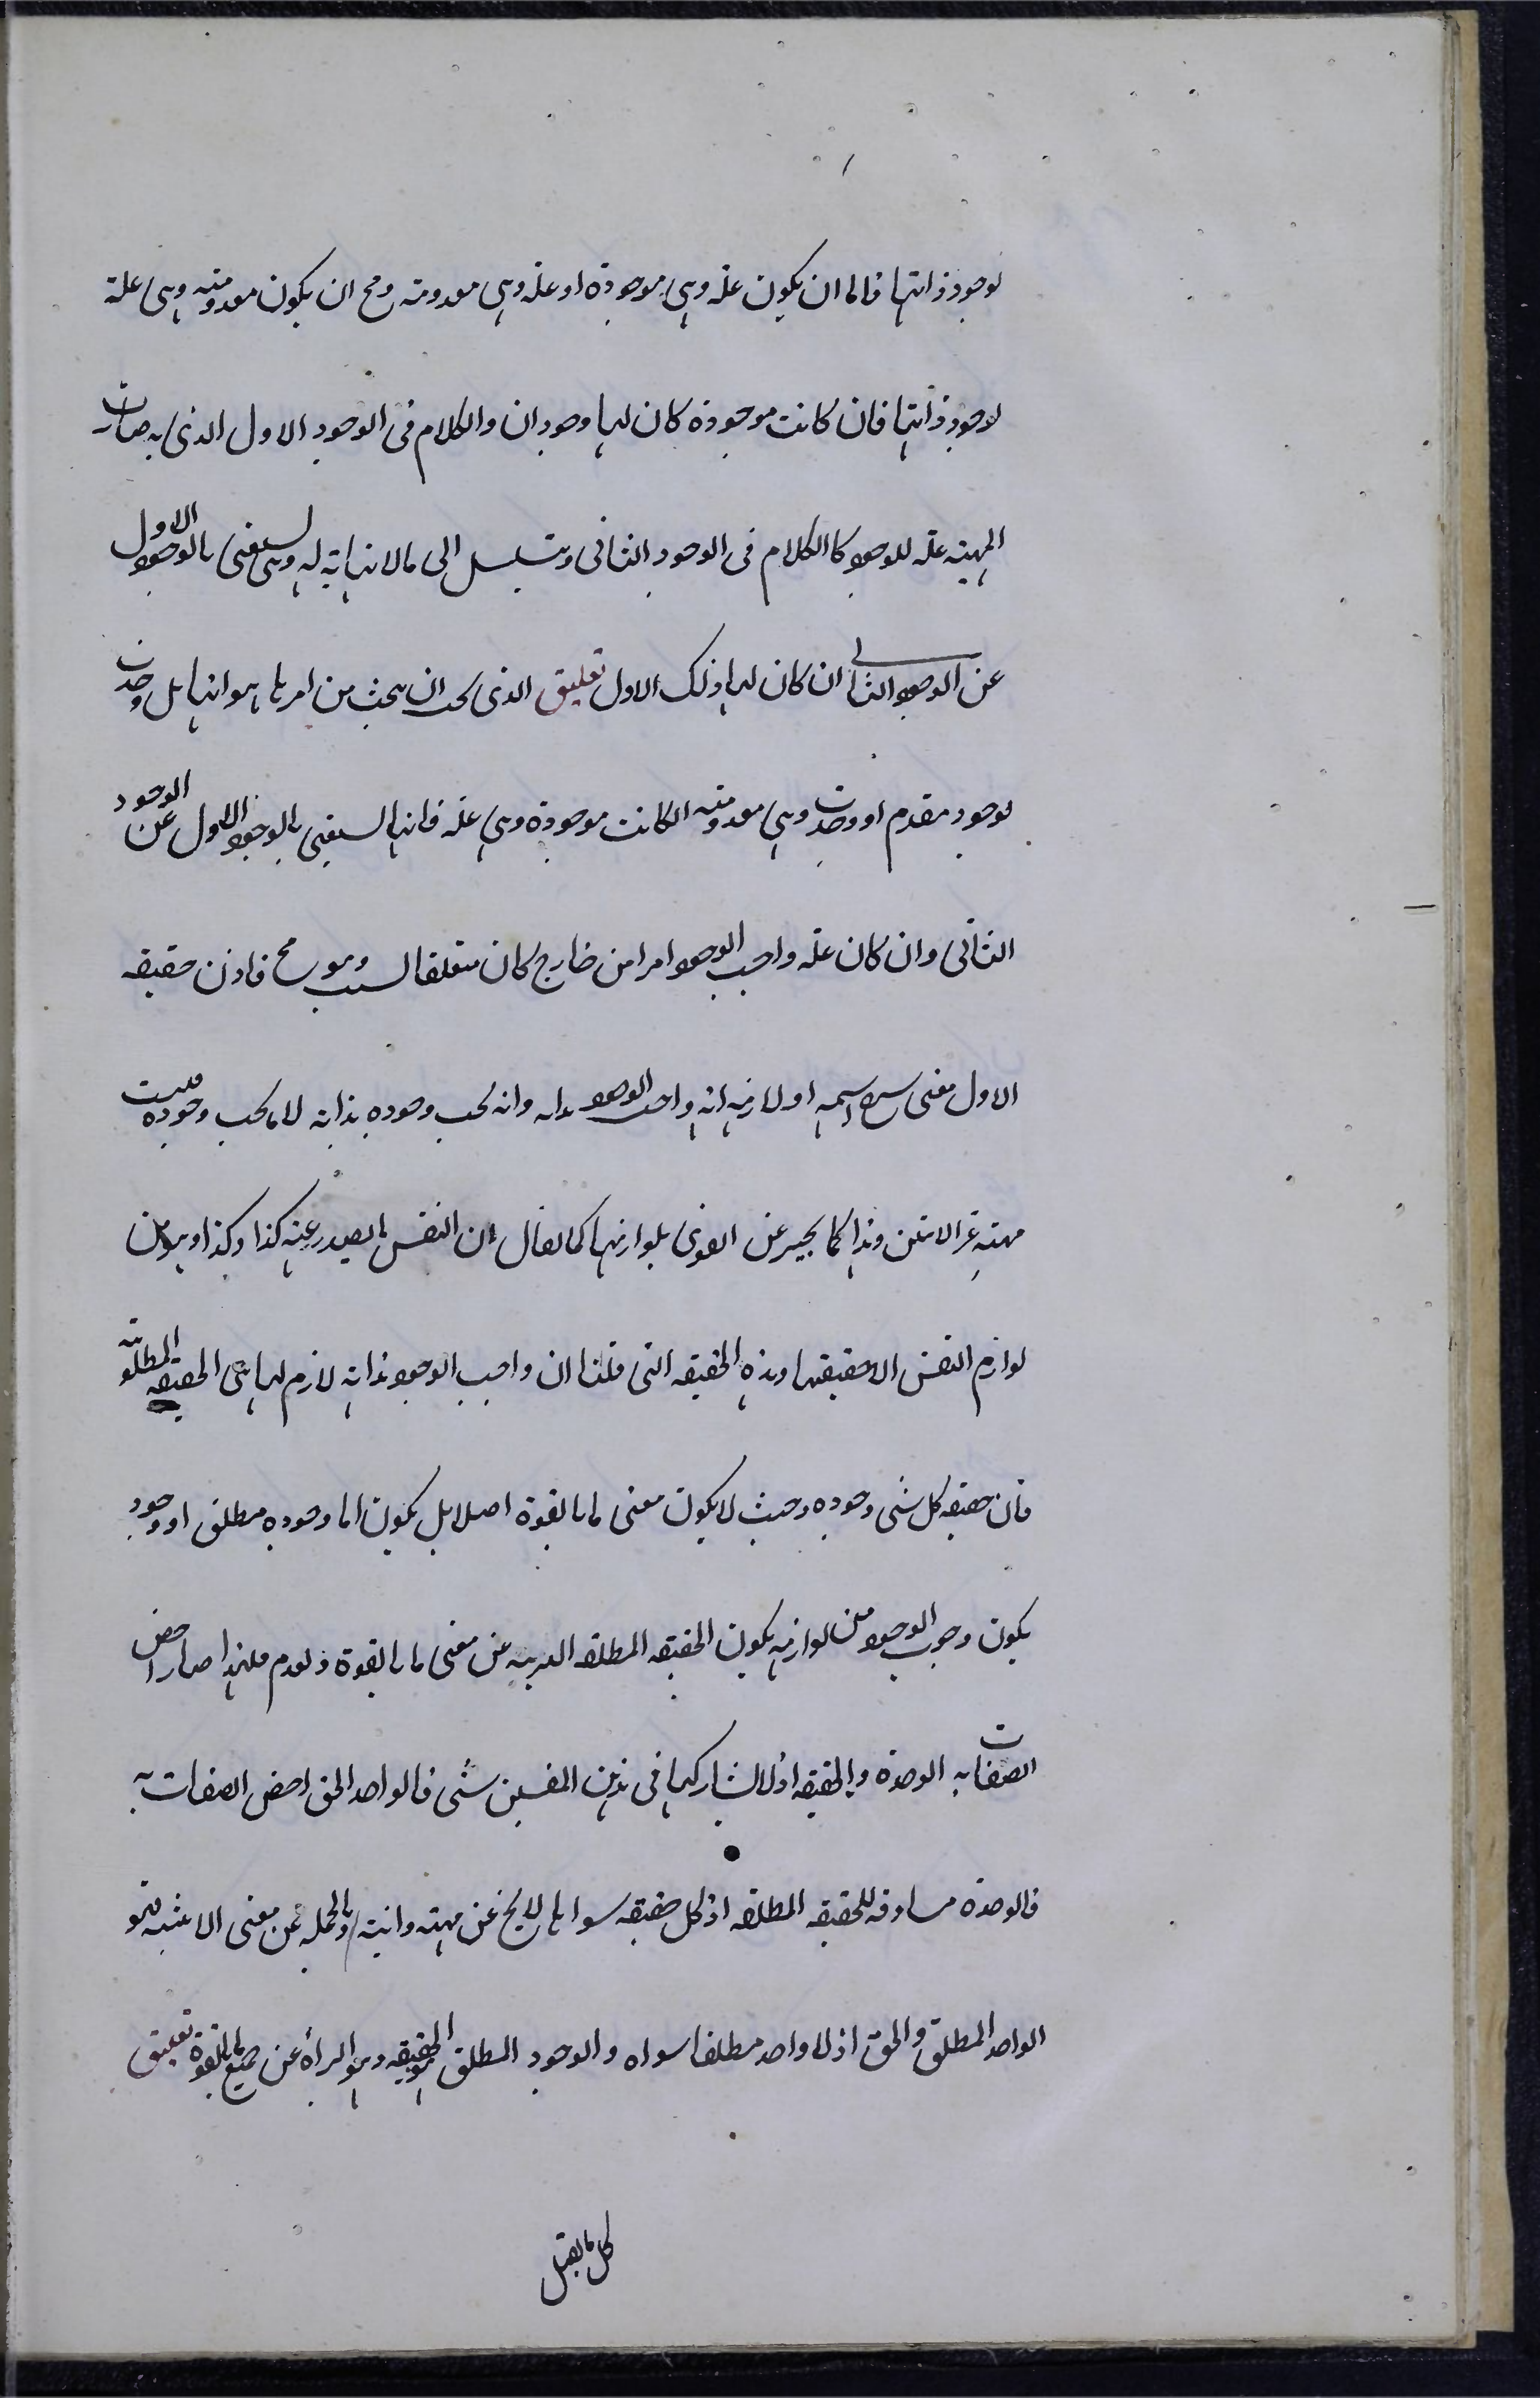 لوجود ذاتها فاما ان يكون علة وهى موجودة او علة وهى معدومة ومح ان يكون معدومة وهى علة
لوجود ذاتها فان كانت موجودة كان لها وجودان والكلام فى الوجود الاول الذى به صارت
المهية علة للوجود كالكلام فى الوجود الثانى ويتسلسل الى مالانهاية له وهى يستغنى بالوجود الاول
عن الوجود الثانى ان كان لها ذلك الاول تعليق الذى يجب ان يبحث من امرها هو انها هل وجدت
لوجود مقدم او وجدت وهى معدومة ان كانت موجودة وهى علة فانها يستغنى بالوجود الاول عن الوجود
الثانى وان كان علة واجب الوجود امرا من خارج كان متعلقا بسبب وهو مح فاذن حقيقة
الاول معنى شرح اسمه او لازمه انه واجب الوجود بذاته وانه يجب وجوده بذاته لا ما يجب وجوده وليست
مهية غير الانية وهذا كما يخبر عن القوى بلوازمها كما يقال ان النفس ما يصدر عنه كذا وكذا وهو من
لوازم النفس لا حقيقتها وهذه الحقيقة التى قلنا ان واجب الوجود بذاته لازم لها هى الحقيقة المطلقة
فان حقيقة كل شى وجوده وحيث لا يكون معنى ما بالقوة اصلا بل يكون اما وجوده مطلق او وجود
يكون وجوب الوجود من لوازمه يكون الحقيقة المطلقة البرية عن معنى ما بالقوة والعدم فلهذا صار اخص
الصفات به الوحدة والحقيقة اذ لا يشاركها فى هذين المعنيين شى فالواحد الحق اخص الصفات به
فالوحدة مساوقة للحقيقة المطلقة اذ كل حقيقة سواها لا يخ عن مهية وانية وبالجملة عن معنى الاثنينية فهو
الواحد المطلق والحق اذ لا واحد مطلقا سواه والوجود المطلق الحقيقة وهو البرأة عن جميع ما بالقوة تعليق
كل ما يقبل